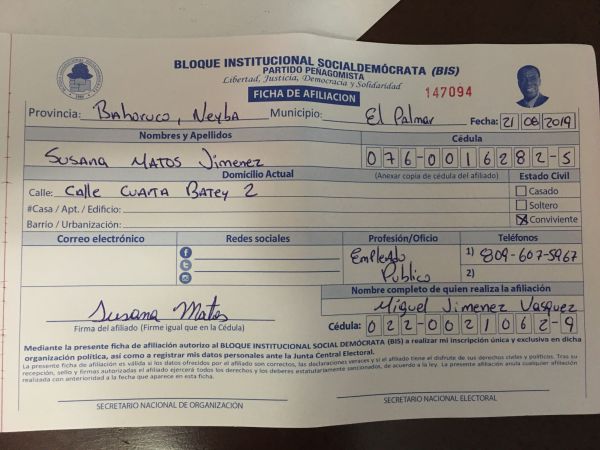 BLOQUE INSTITUCIONAL SOCIALDEMÓCRATA (BIS)
PARTIDO PEÑAGOMISTA
Libertad, Justicia, Democracia y Solidaridad
FICHA DE AFILIACION 147094
Provincia: Bahoruco, Neyba Municipio: El Palmar Fecha: 21 08 2019
Nombres y Apellidos Cédula
Susana Matos Jimenez 076-0016282-5
Domicilio Actual (Anexar copia de cédula del afiliado) Estado Civil
Calle: Calle Cuarta Batey 2 Casado
#Casa / Apt. / Edificio: Soltero
Barrio / Urbanización: Conviviente
Correo electrónico Redes sociales Profesión/Oficio Teléfonos
Empleado 1) 809-607-5967
Publico 2)
Nombre completo de quien realiza la afiliación
Susana Matos Miguel Jimenez Vasquez
Firma del afiliado (Firme igual que en la Cédula) Cédula: 022-0021062-9
Mediante la presente ficha de afiliación autorizo al BLOQUE INSTITUCIONAL SOCIAL DEMÓCRATA (BIS) a realizar mi inscripción única y exclusiva en dicha
organización política, así como a registrar mis datos personales ante la Junta Central Electoral.
La presente ficha de afiliación es válida si los datos ofrecidos por el afiliado son correctos, las declaraciones veraces y si el afiliado tiene el disfrute de sus derechos civiles y políticos. Tras su
recepción, sello y firmas autorizadas el afiliado ejercerá todos los derechos y los deberes estatutariamente sancionados, de acuerdo a la ley. La presente afiliación anula cualquier afiliación
realizada con anterioridad a la fecha que aparece en esta ficha.
SECRETARIO NACIONAL DE ORGANIZACIÓN SECRETARIO NACIONAL ELECTORAL